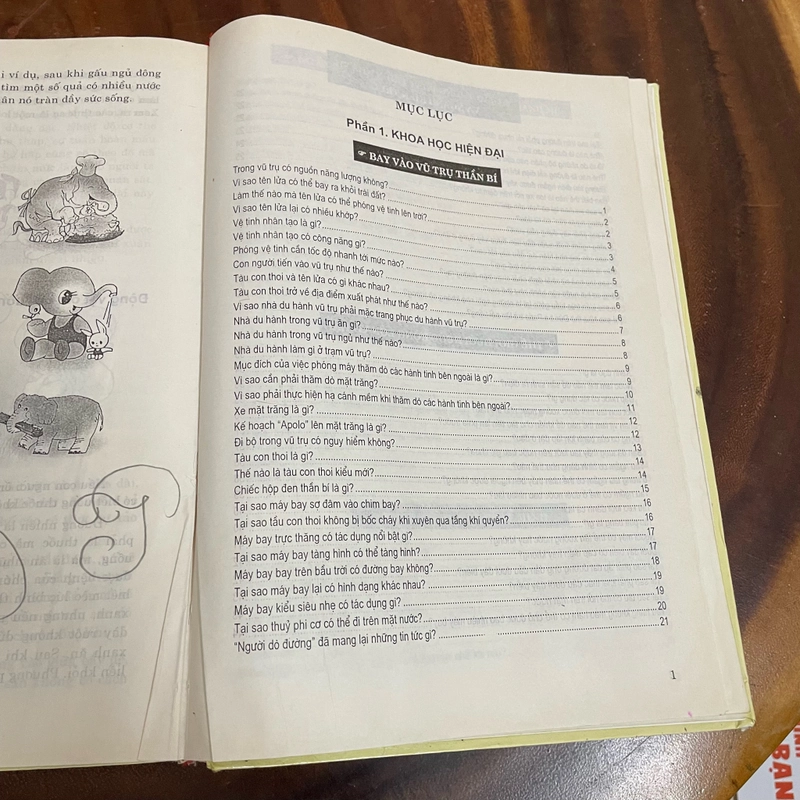 i ví dụ, sau khi gấu ngủ đông
tìm một số quả có nhiều nước
ăn nó tràn đầy sức sống.
MỤC LỤC
Phần 1. KHOA HỌC HIỆN ĐẠI
☞ BAY VÀO VŨ TRỤ THẦN BÍ
Trong vũ trụ có nguồn năng lượng không? 1
Vì sao tên lửa có thể bay ra khỏi trái đất? 2
Làm thế nào mà tên lửa có thể phóng vệ tinh lên trời? 2
Vì sao tên lửa lại có nhiều khớp? 3
Vệ tinh nhân tạo là gì? 3
Vệ tinh nhân tạo có công năng gì? 4
Phóng vệ tinh cần tốc độ nhanh tới mức nào? 5
Con người tiến vào vũ trụ như thế nào? 5
Tàu con thoi và tên lửa có gì khác nhau? 6
Tàu con thoi trở về địa điểm xuất phát như thế nào? 6
Vì sao nhà du hành vũ trụ phải mặc trang phục du hành vũ trụ? 7
Nhà du hành trong vũ trụ ăn gì? 8
Nhà du hành trong vũ trụ ngủ như thế nào? 8
Nhà du hành làm gì ở trạm vũ trụ? 9
Mục đích của việc phóng máy thăm dò các hành tinh bên ngoài là gì? 9
Vì sao cần phải thăm dò mặt trăng? 10
Vì sao phải thực hiện hạ cánh mềm khi thăm dò các hành tinh bên ngoài? 11
Xe mặt trăng là gì? 12
Kế hoạch "Apolo" lên mặt trăng là gì? 12
Đi bộ trong vũ trụ có nguy hiểm không? 13
Tàu con thoi là gì? 14
Thế nào là tàu con thoi kiểu mới? 14
Chiếc hộp đen thần bí là gì? 15
Tại sao máy bay sợ đâm vào chim bay? 16
Tại sao tầu con thoi không bị bốc cháy khi xuyên qua tầng khí quyển? 16
Máy bay trực thăng có tác dụng nổi bật gì? 17
Tại sao máy bay tàng hình có thể tàng hình? 17
Máy bay bay trên bầu trời có đường bay không? 18
Tại sao máy bay lại có hình dạng khác nhau? 19
Máy bay kiểu siêu nhẹ có tác dụng gì? 19
Tại sao thuỷ phi cơ có thể đi trên mặt nước? 20
"Người dò đường" đã mang lại những tin tức gì? 21
1
BẠN